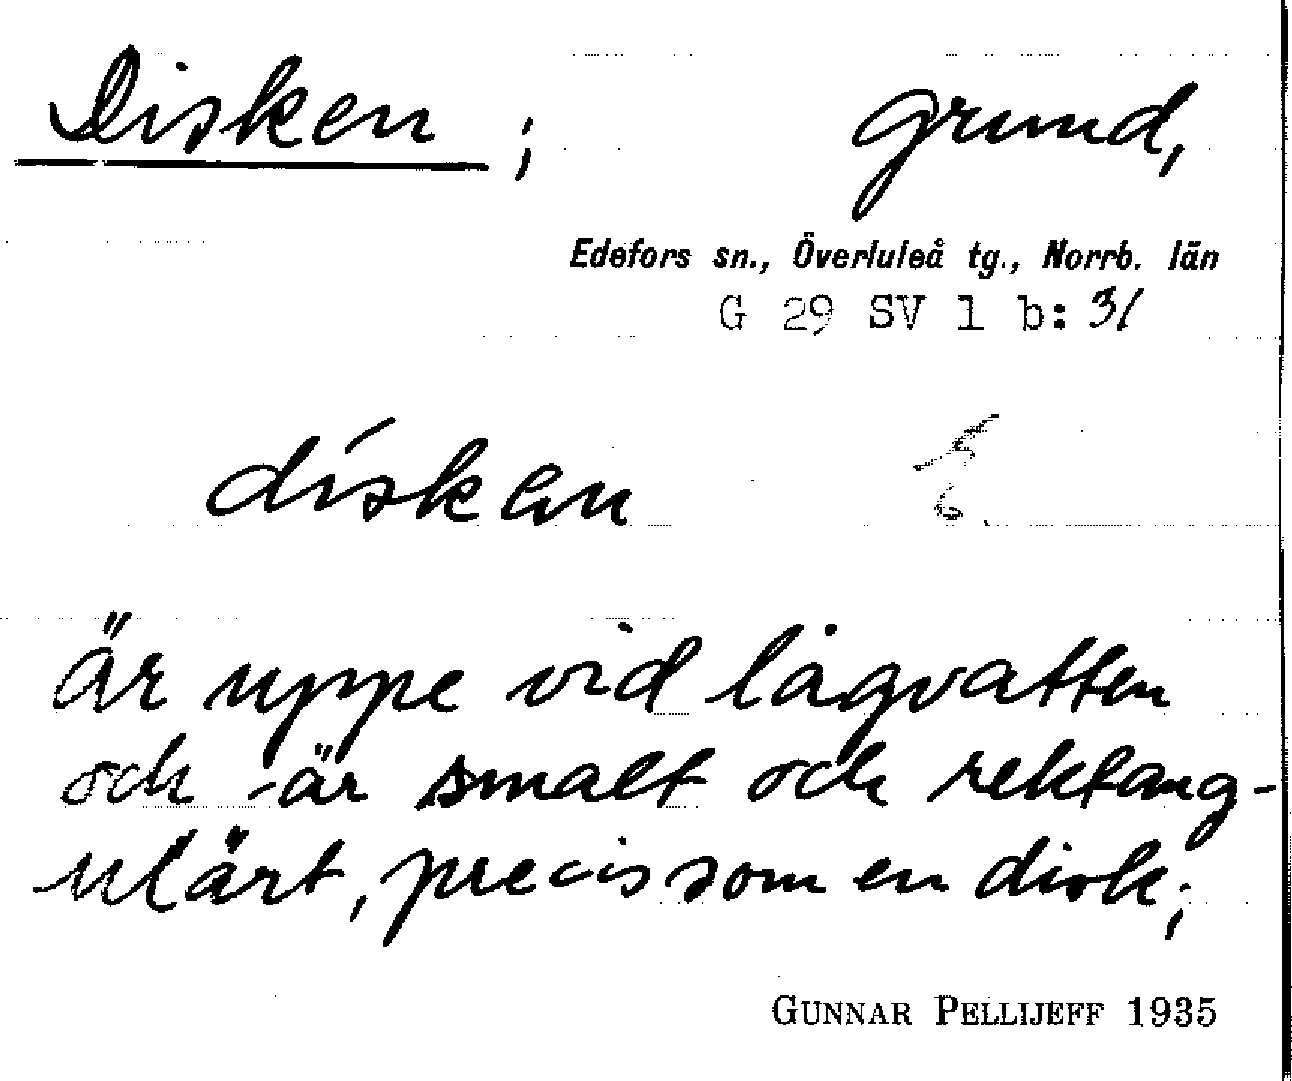 Disken; grund,
Edefors sn., Överluleå tg., Norrb. län
G 29 SV 1 b: 31
dískan
är uppe vid lågvatten
och är smalt och rektang-
ulärt, precis som en disk;
GUNNAR PELLIJEFF 1935